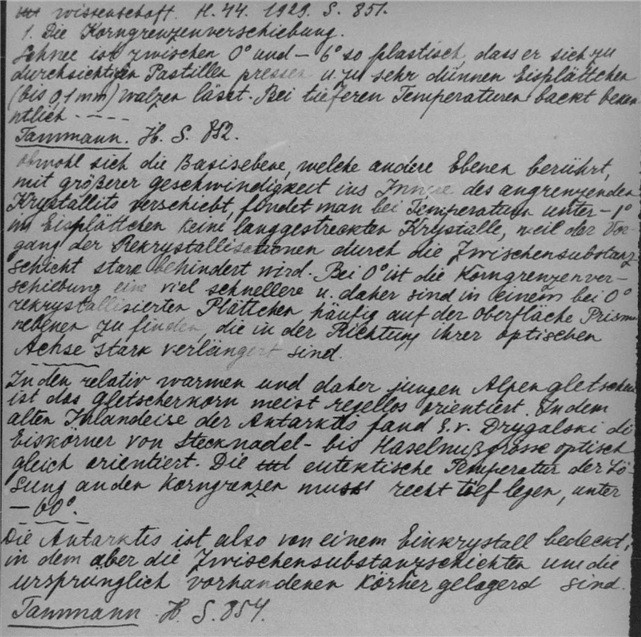 wissenschaft. H. 44. 1929. S. 851.
1. Die Korngrenzenverschiebung.
Schnee ist zwischen 0° und - 6° so plastisch, dass er sich zu
durchsichtigen Pastillen pressen u. zu sehr dünnen Eisplättchen
(bis 0,1 mm) walzen lässt. Bei tieferen Temperaturen backt beken
ntlich - - - -
Tammann. H. S. 852.
obwohl sich die Basisebene, welche andere Ebenen berührt,
mit größerer Geschwindigkeit ins Innere des angrenzenden
Krystallits verschiebt, findet man bei Temperaturen unter -1°
im Eisplättchen keine langgestreckten Krystalle, weil der Vor-
gang der Rekrystallisationen durch die Zwischensubstanz-
schicht stark behindert wird. Bei 0° ist die Korngrenzenver-
schiebung eine viel schnellere u. daher sind in einem bei 0°
rekrystallisierten Plättchen, häufig auf der Oberfläche Prismen
ebenen zu finden, die in der Richtung ihrer optischen
Achse stark verlängert sind.
In den relativ warmen und daher jungen Alpengletschern
ist das Gletscherkorn meist regellos orientiert. In dem
alten Inlandeise der Antarktis fand E. v. Drygalski die
Eiskörner von Stecknadel- bis Haselnußgrösse optisch
gleich orientiert. Die eutektische Temperatur der Lö-
sung an den Korngrenzen muss recht tief legen, unter
- 60°.
Die Antarktis ist also von einem Einkrystall bedeckt,
in dem aber die Zwischensubstanzschichten um die
ursprunglich vorhandenen Körner gelagerd sind.
Tammann. H. S. 854.